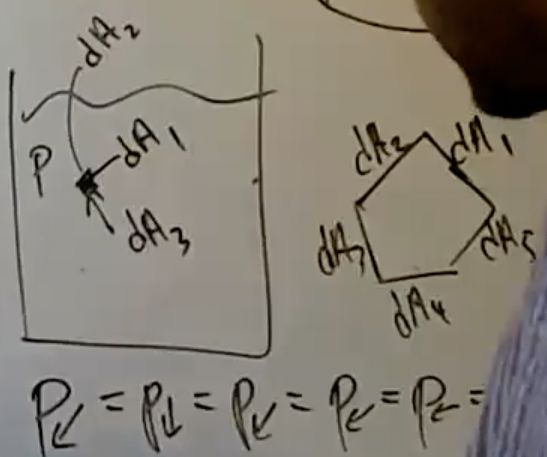 dA₂
P
dA₁
dA₃
dA₂ dA₁
dA₃ dA₅
dA₄
P↙ = P↓ = P↙ = P↙ = P← =